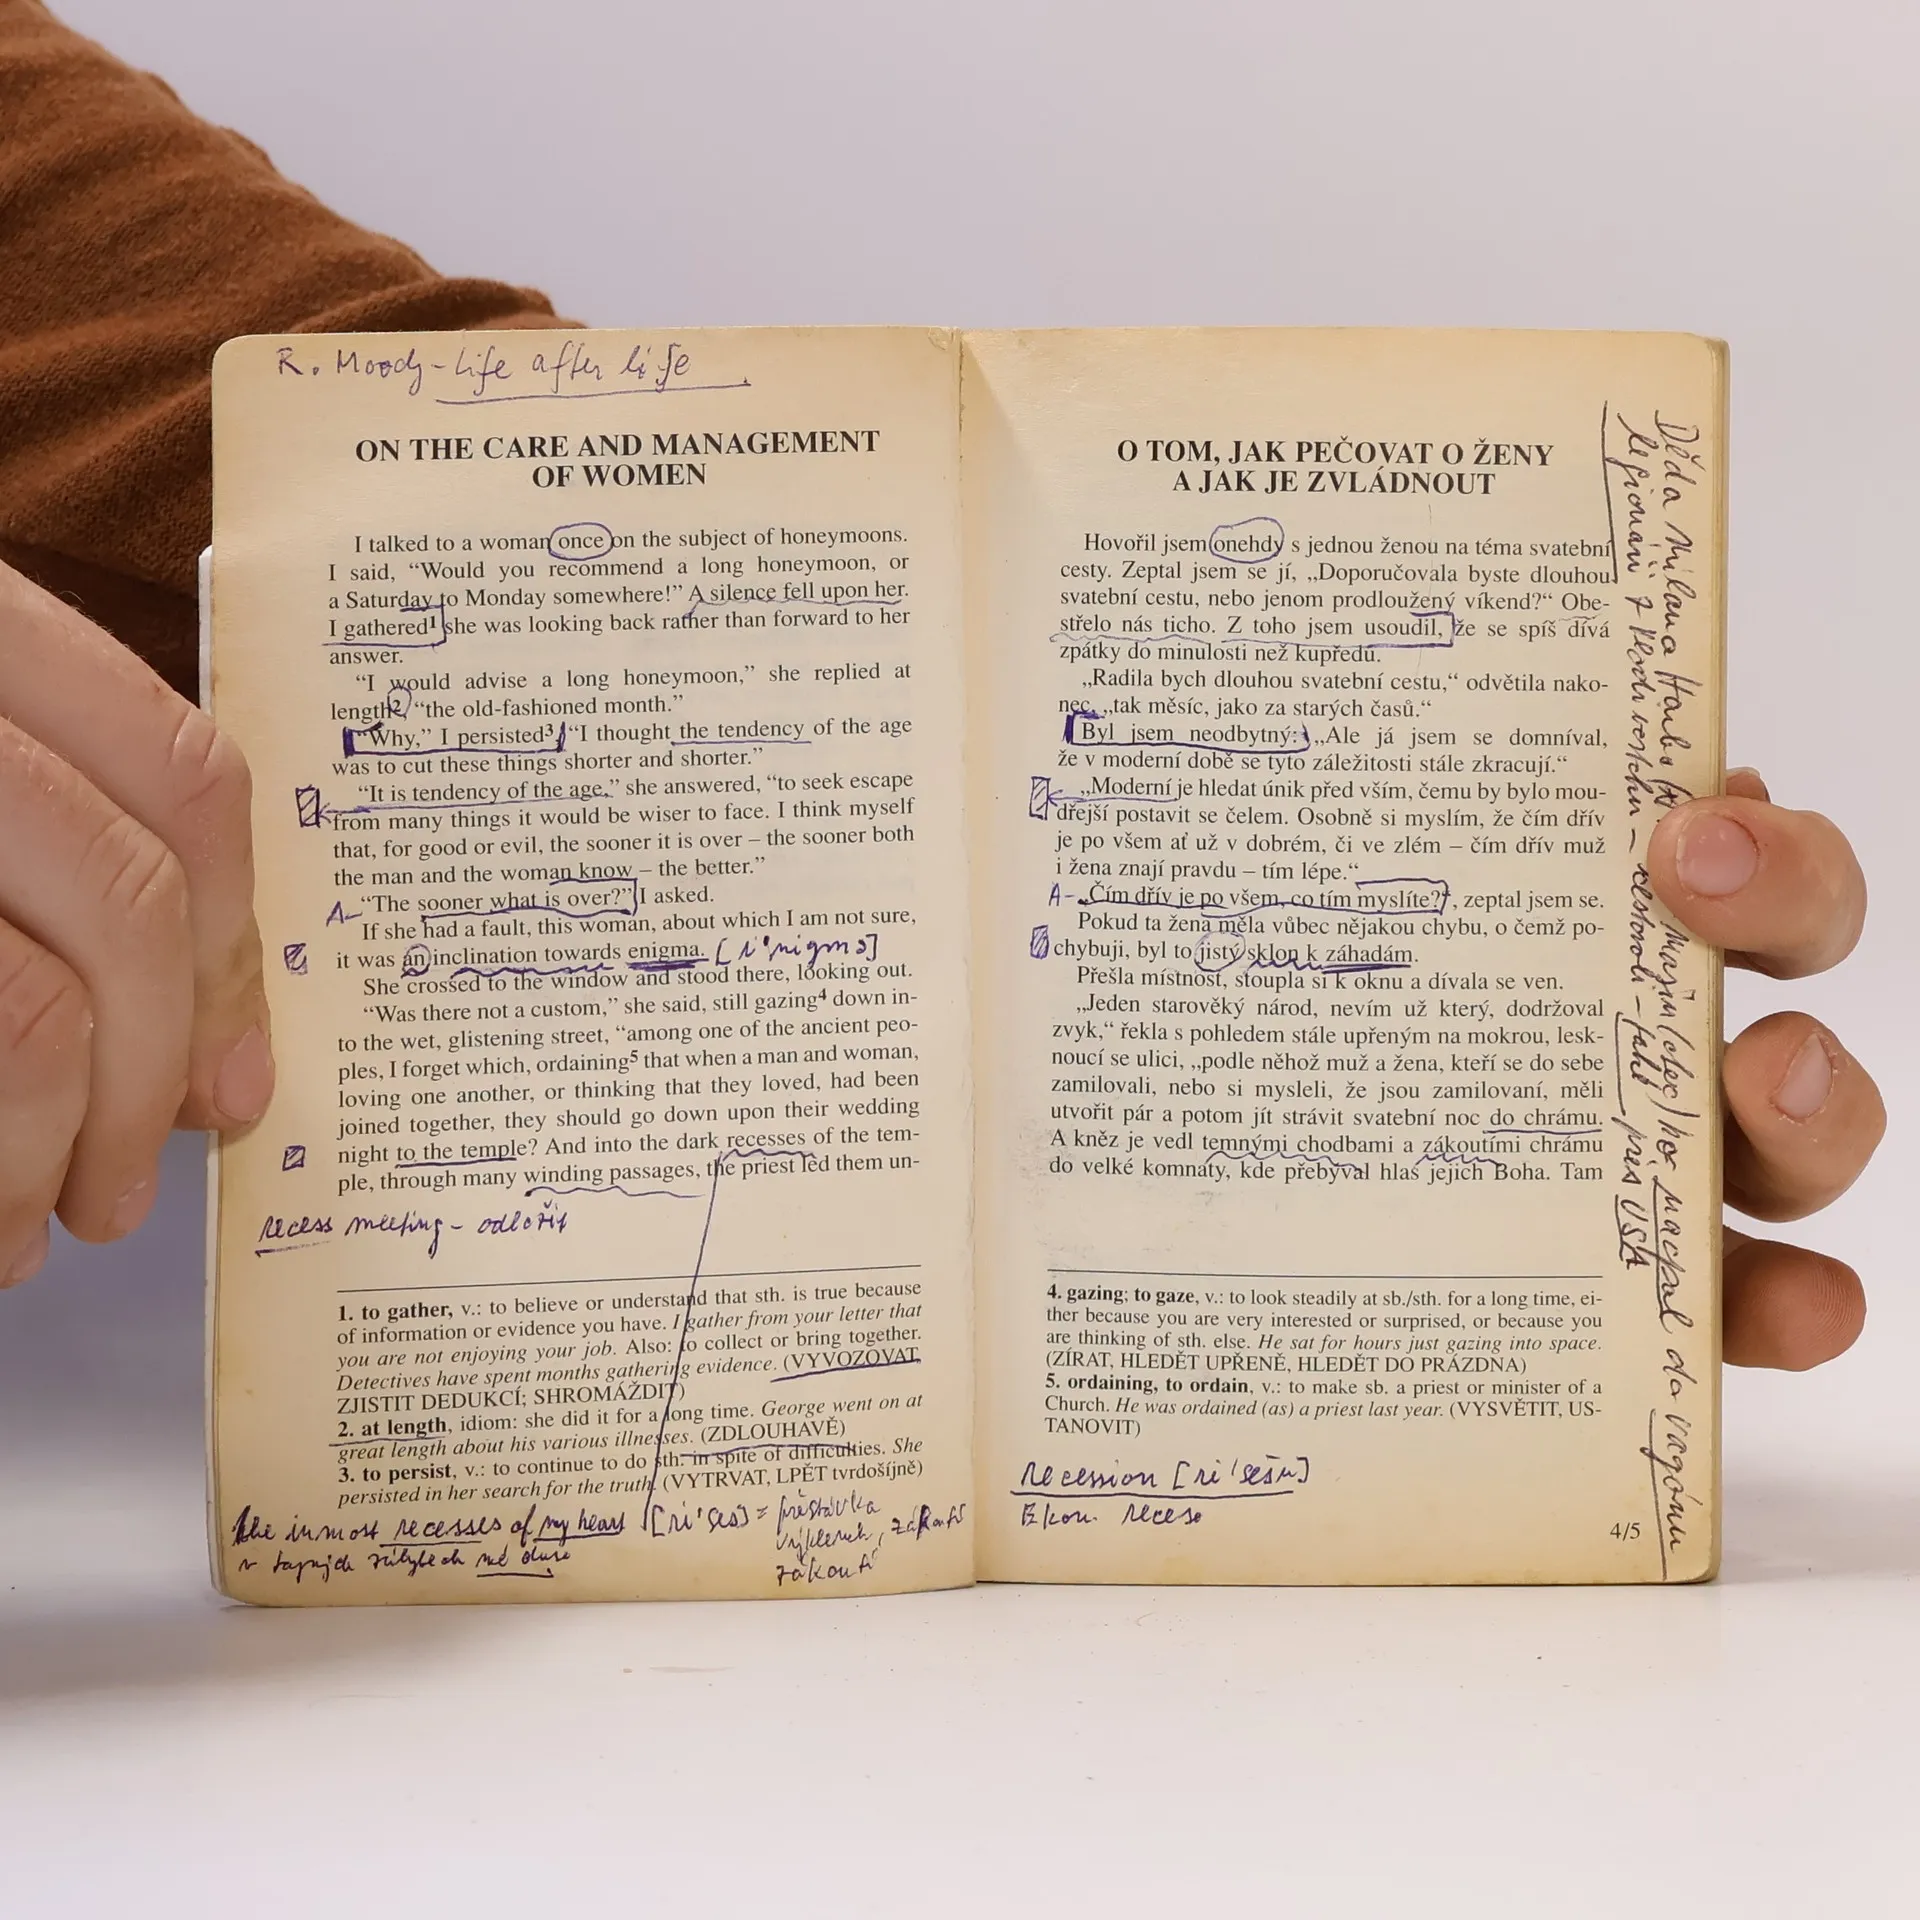 R. Moody - Life after life
ON THE CARE AND MANAGEMENT
OF WOMEN
I talked to a woman once on the subject of honeymoons.
I said, “Would you recommend a long honeymoon, or
a Saturday to Monday somewhere!” A silence fell upon her.
I gathered¹ she was looking back rather than forward to her
answer.
“I would advise a long honeymoon,” she replied at
length², “the old-fashioned month.”
“Why,” I persisted³, “I thought the tendency of the age
was to cut these things shorter and shorter.”
“It is tendency of the age,” she answered, “to seek escape
from many things it would be wiser to face. I think myself
that, for good or evil, the sooner it is over – the sooner both
the man and the woman know – the better.”
A- “The sooner what is over?” I asked.
If she had a fault, this woman, about which I am not sure,
it was an inclination towards enigma. [i'nigmə]
She crossed to the window and stood there, looking out.
“Was there not a custom,” she said, still gazing⁴ down in-
to the wet, glistening street, “among one of the ancient peo-
ples, I forget which, ordaining⁵ that when a man and woman,
loving one another, or thinking that they loved, had been
joined together, they should go down upon their wedding
night to the temple? And into the dark recesses of the tem-
ple, through many winding passages, the priest led them un-
recess meeting - odložit
1. to gather, v.: to believe or understand that sth. is true because
of information or evidence you have. I gather from your letter that
you are not enjoying your job. Also: to collect or bring together.
Detectives have spent months gathering evidence. (VYVOZOVAT,
ZJISTIT DEDUKCÍ; SHROMÁŽDIT)
2. at length, idiom: she did it for a long time. George went on at
great length about his various illnesses. (ZDLOUHAVĚ)
3. to persist, v.: to continue to do sth. in spite of difficulties. She
persisted in her search for the truth. (VYTRVAT, LPĚT tvrdošíjně)
the inmost recesses of my heart [ri'ses] = přestávka
výklenek, zákoutí
v tajných záhybech mé duše
zákoutí
O TOM, JAK PEČOVAT O ŽENY
A JAK JE ZVLÁDNOUT
Hovořil jsem onehdy s jednou ženou na téma svatební
cesty. Zeptal jsem se jí, „Doporučovala byste dlouhou
svatební cestu, nebo jenom prodloužený víkend?“ Obe-
střelo nás ticho. Z toho jsem usoudil, že se spíš dívá
zpátky do minulosti než kupředu.
„Radila bych dlouhou svatební cestu,“ odvětila nako-
nec, „tak měsíc, jako za starých časů.“
Byl jsem neodbytný: „Ale já jsem se domníval,
že v moderní době se tyto záležitosti stále zkracují.“
„Moderní je hledat únik před vším, čemu by bylo mou-
dřejší postavit se čelem. Osobně si myslím, že čím dřív
je po všem ať už v dobrém, či ve zlém – čím dřív muž
i žena znají pravdu – tím lépe.“
A- „Čím dřív je po všem, co tím myslíte?“, zeptal jsem se.
Pokud ta žena měla vůbec nějakou chybu, o čemž po-
chybuji, byl to jistý sklon k záhadám.
Přešla místnost, stoupla si k oknu a dívala se ven.
„Jeden starověký národ, nevím už který, dodržoval
zvyk,“ řekla s pohledem stále upřeným na mokrou, lesk-
noucí se ulici, „podle něhož muž a žena, kteří se do sebe
zamilovali, nebo si mysleli, že jsou zamilovaní, měli
utvořit pár a potom jít strávit svatební noc do chrámu.
A kněz je vedl temnými chodbami a zákoutími chrámu
do velké komnaty, kde přebýval hlas jejich Boha. Tam
4. gazing; to gaze, v.: to look steadily at sb./sth. for a long time, ei-
ther because you are very interested or surprised, or because you
are thinking of sth. else. He sat for hours just gazing into space.
(ZÍRAT, HLEDĚT UPŘENĚ, HLEDĚT DO PRÁZDNA)
5. ordaining, to ordain, v.: to make sb. a priest or minister of a
Church. He was ordained (as) a priest last year. (VYSVĚTIT, US-
TANOVIT)
recession [ri'sešn]
Ekon. recese
4/5
Děda Milana (otec) ho nacpal do vagónu
legionáři z Vladivostoku - cestovali - také přes USA